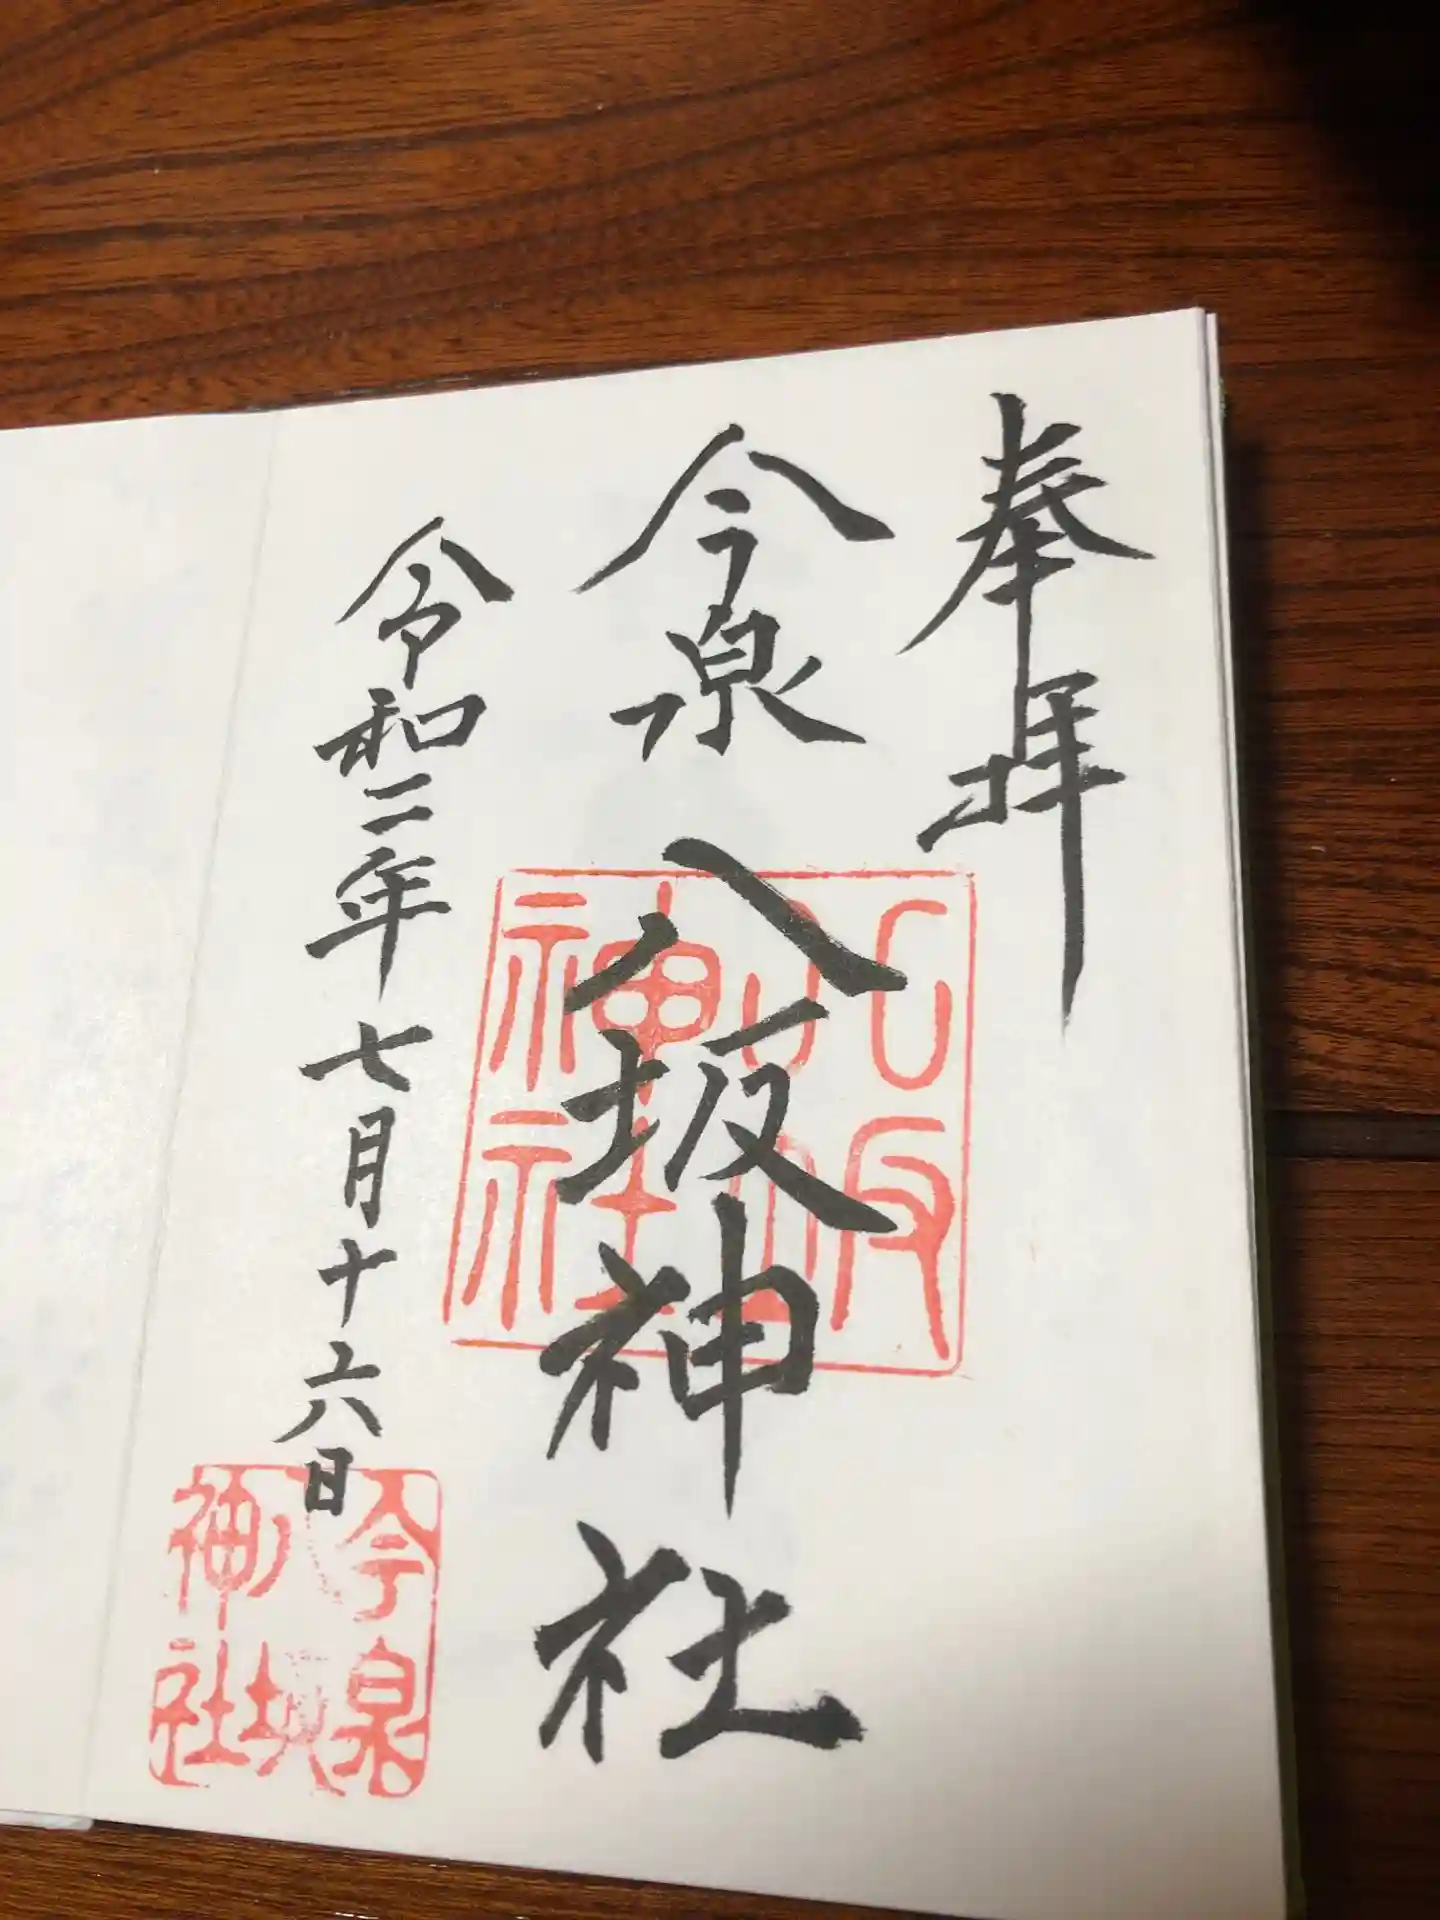 奉拝
今泉八坂神社
令和二年七月十六日
八坂神社
今泉八坂神社